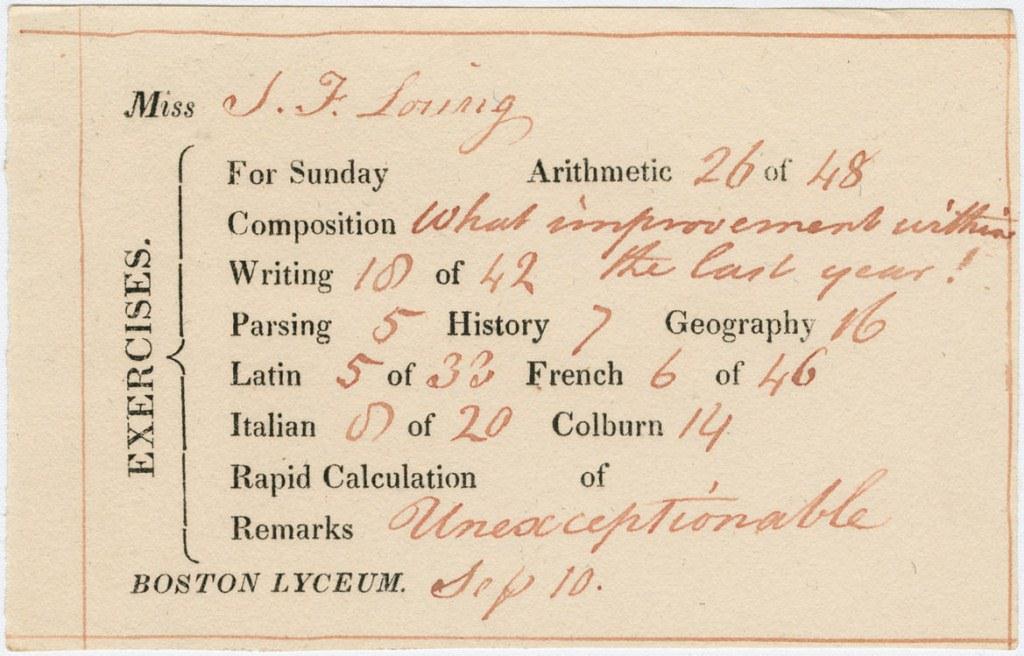 Miss S. F. Loring
EXERCISES.
For Sunday Arithmetic 26 of 48
Composition What improvement within
Writing 18 of 42 the last year!
Parsing 5 History 7 Geography 16
Latin 5 of 33 French 6 of 46
Italian 8 of 20 Colburn 14
Rapid Calculation of
Remarks Unexceptionable
BOSTON LYCEUM. Sep 10.